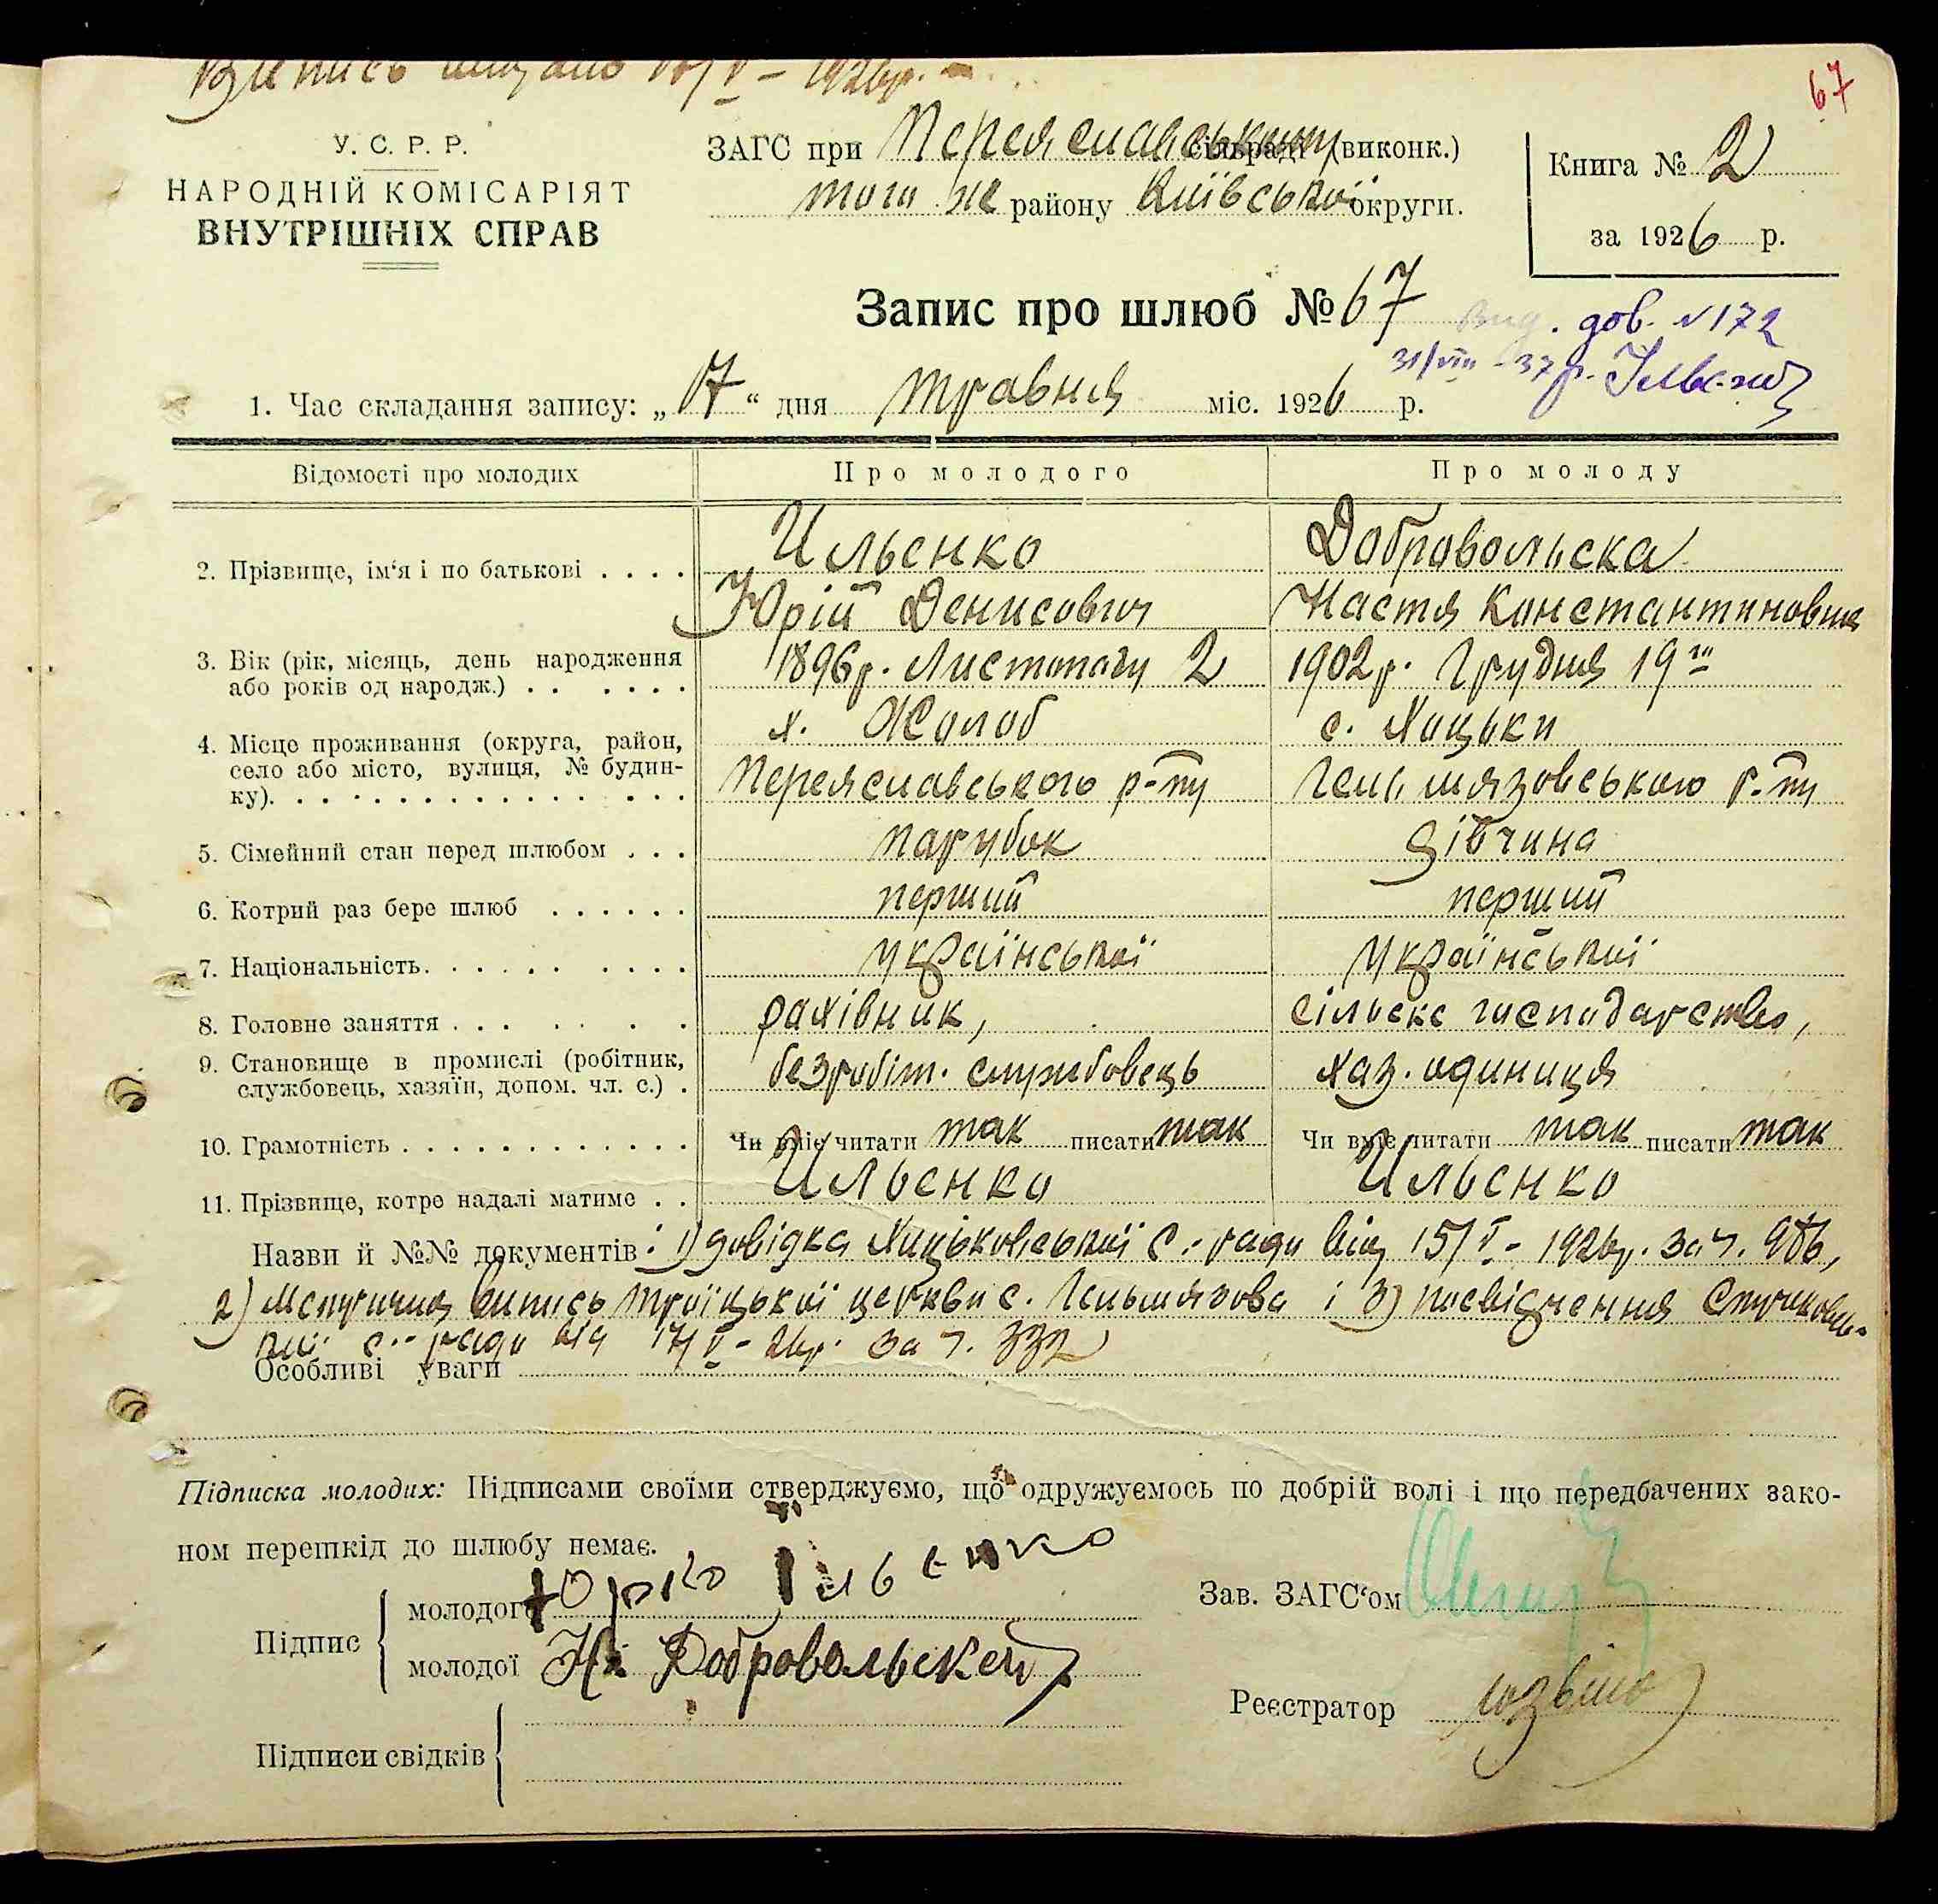 67
У. С. Р. Р.
НАРОДНІЙ КОМІСАРІЯТ
ВНУТРІШНІХ СПРАВ
ЗАГС при Переяславському сільраді (виконк.)
того же району Київської округи.
Книга № 2
за 1926 р.
Запис про шлюб № 67
Вид. дов. N 172
31/VIII - 37 р.
1. Час складання запису: „17“ дня травня міс. 1926 р.
Відомості про молодих Про молодого Про молоду
2. Прізвище, ім‘я і по батькові . . . . Ильенко Добровольска
Юрій Денисович Настя Константиновна
3. Вік (рік, місяць, день народження 1896 р. Листопаду 2 1902 р. Грудня 19го
або років од народж.) . . . . . .
4. Місце проживання (округа, район, х. Жолоб с. Хоцьки
село або місто, вулиця, № будин- Переяславського р-ну Гельмязовського р-ну
ку). . . . . . . . . . . . . . . .
5. Сімейний стан перед шлюбом . . . парубок дівчина
6. Котрий раз бере шлюб . . . . . . перший перший
7. Національність. . . . . . . . . . української української
8. Головне заняття . . . . . . . рахівник, сільске господарство,
9. Становище в промислі (робітник,
службовець, хазяїн, допом. чл. с.) . безробіт. службовець хаз. одиниця
10. Грамотність . . . . . . . . . . . . . Чи вміє читати так писати так Чи вміє читати так писати так
11. Прізвище, котре надалі матиме . . Ильенко Ильенко
Назви й №№ документів: 1) довідка Хоцьковської с.-ради від 15/V - 1926р. за ч.
2) Метрична випись троїцької церкви с. Гельмязова і 3) посвідчення
с.-ради від 17/V - 26р. за ч. 332
Особливі уваги
Підписка молодих: Підписами своїми стверджуємо, що одружуємось по добрій волі і що передбачених зако-
ном перешкід до шлюбу немає.
Підпис
молодого Юрко Ільенко
молодої Н. Добровольская
Зав. ЗАГС‘ом
Реєстратор
Підписи свідків